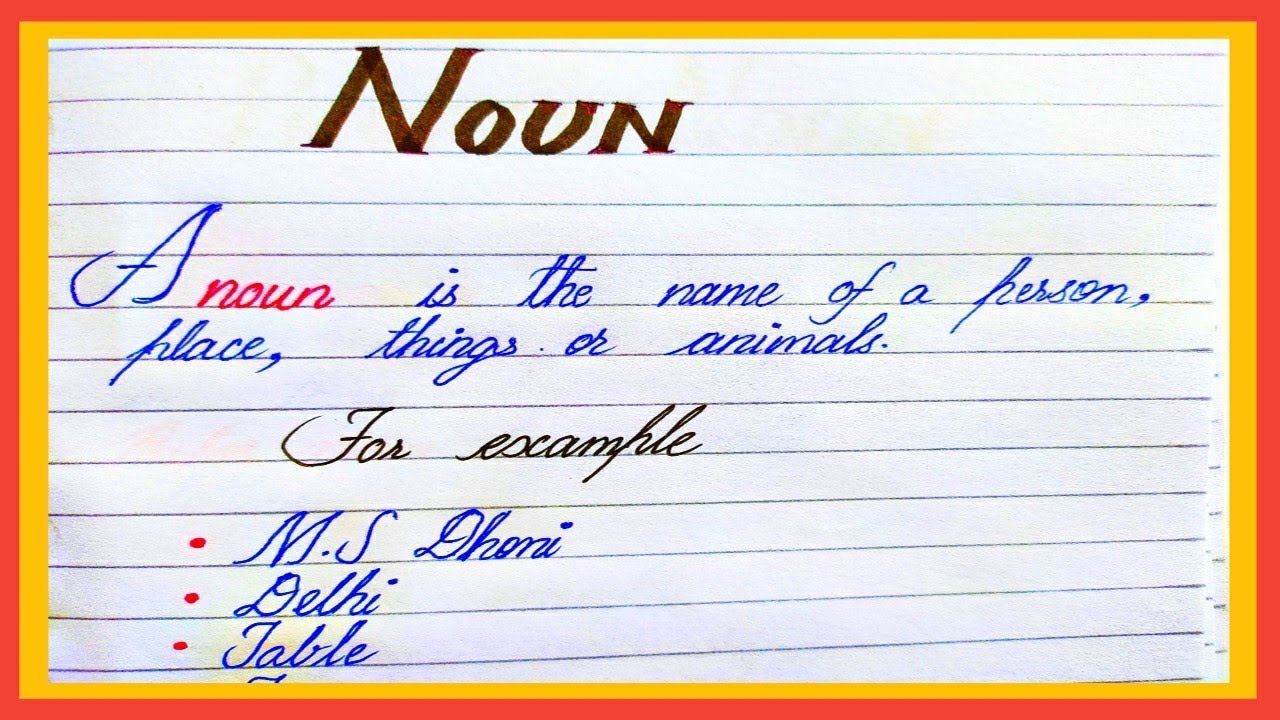 NOUN
A noun is the name of a person,
place, things or animals.
For example
• M.S Dhoni
• Delhi
• Table